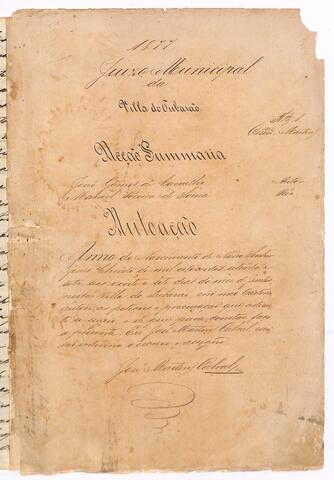 1877
Juizo Municipal
da
Villa do Tubarão
Fls 1.
Acção Summaria
José Gomes de Carvalho
Autor
Manoel de Souza
Réo
Autoação
Anno do Nascimento de Nosso Senhor
Jesus Christo de mil oitocentos setenta e
sete aos vinte e sete dias do mez de
nesta Villa do Tubarão, em meu Cartorio
autoei a petição e procuração que adian
te se segue, e do que para constar faço
a presente. Eu José Martins Cabral
escrevi
José Martins Cabral